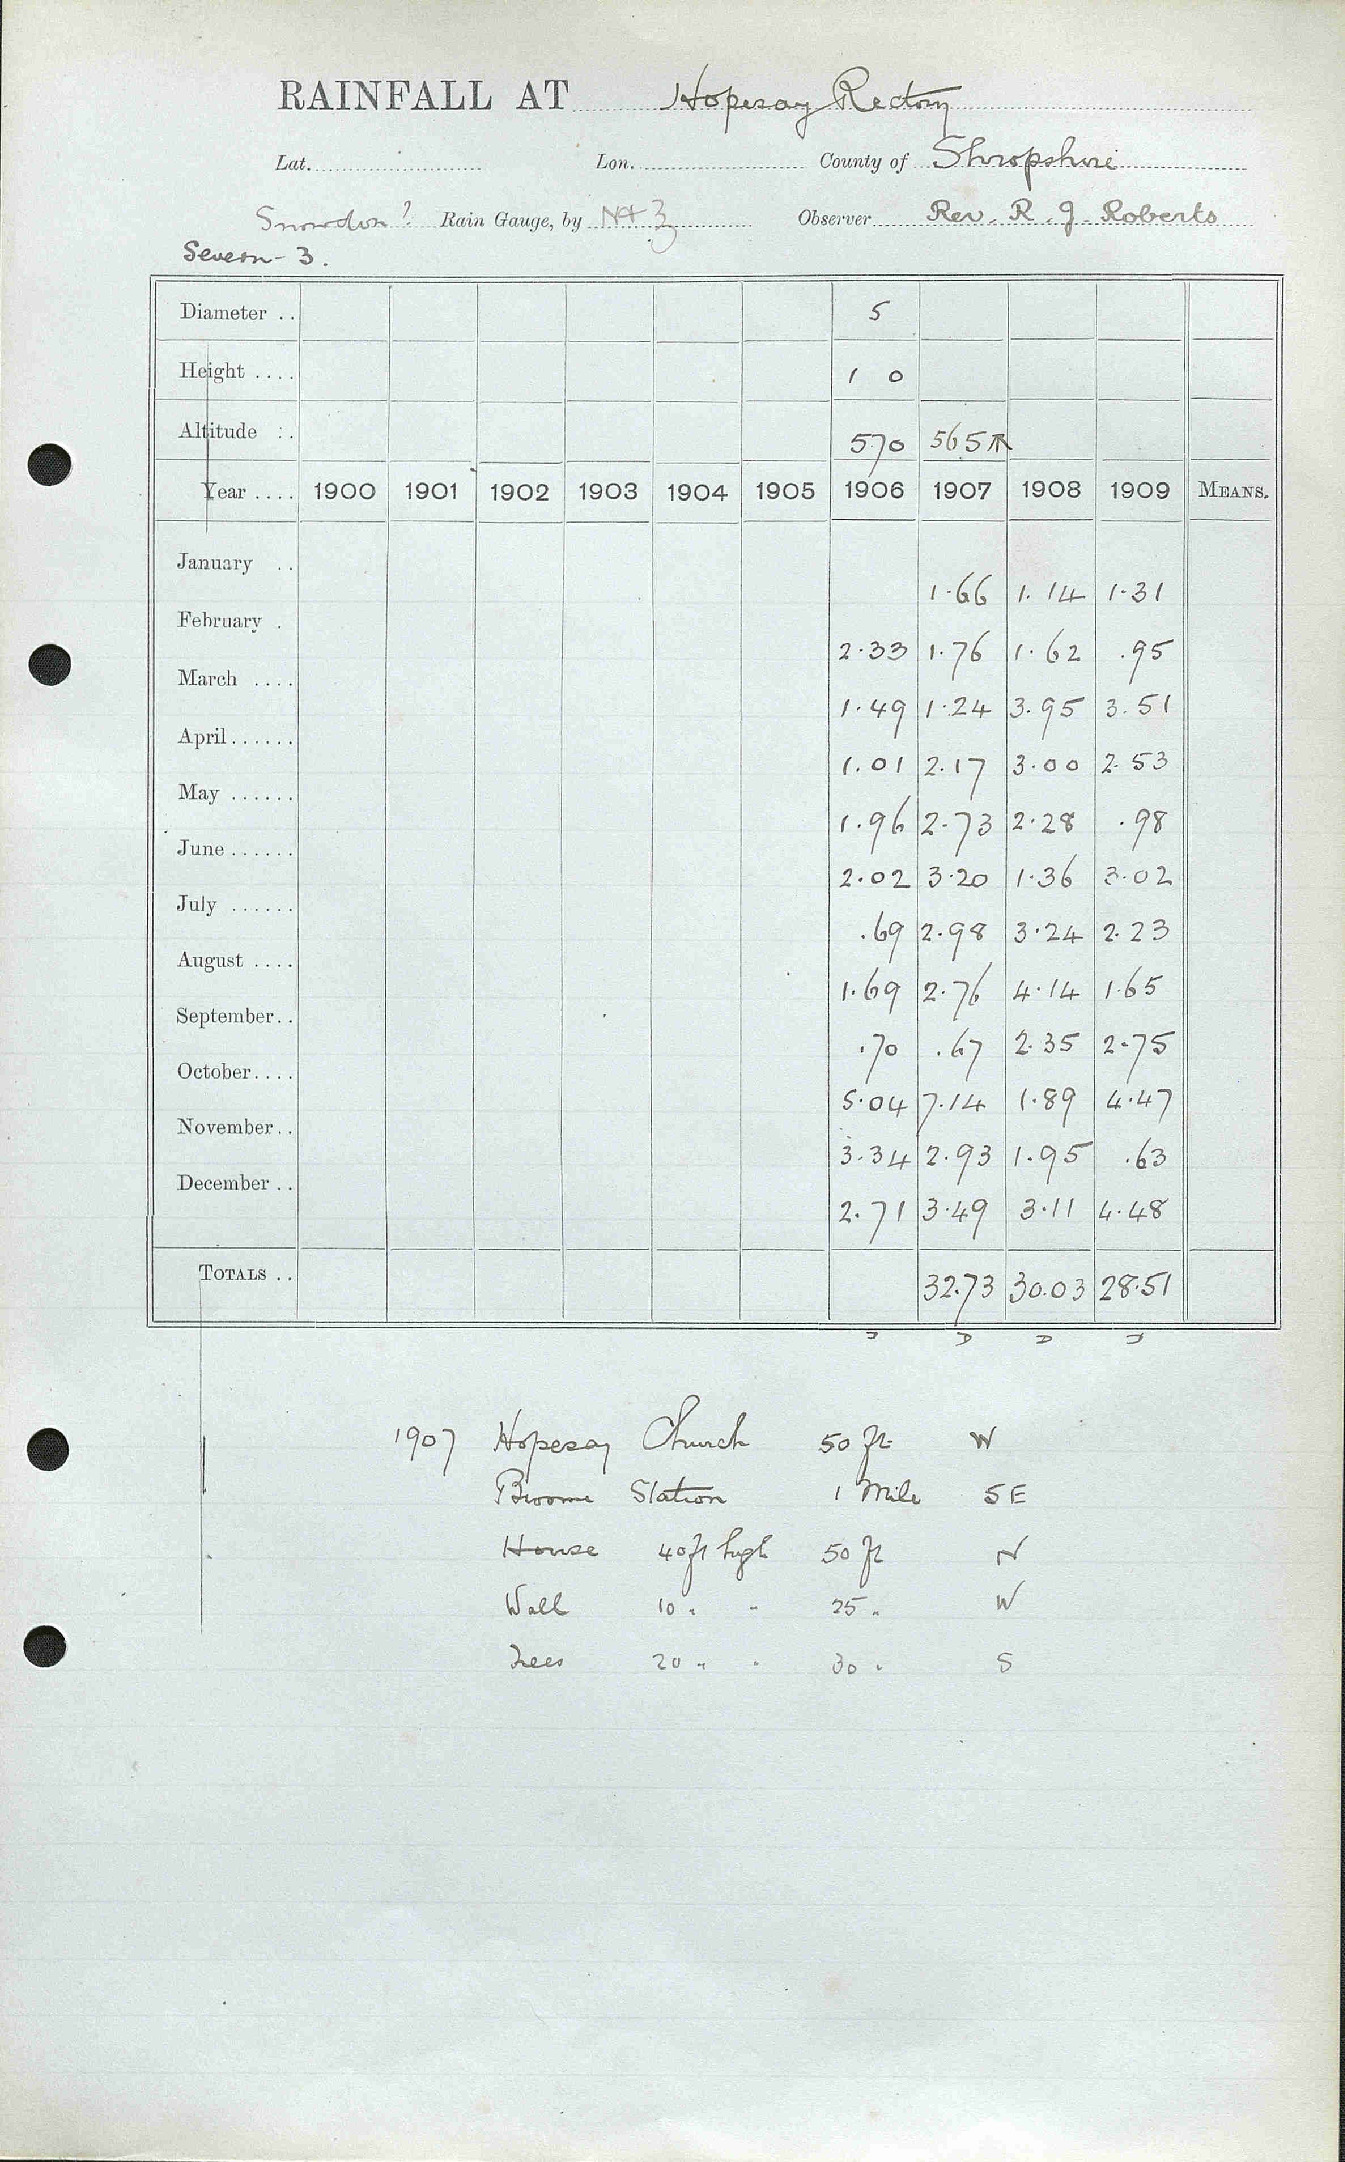 RAINFALL AT Hopesay Rectory
Lat. Lon. County of Shropshire
Snowdon? Rain Gauge, by N+Z Observer Rev. R. J. Roberts
Severn - 3.
Diameter .. 5
Height .... 1 0
Altitude .. 570 565
Year .... 1900 1901 1902 1903 1904 1905 1906 1907 1908 1909 MEANS.
January .. 1.66 1.14 1.31
February . 2.33 1.76 1.62 .95
March .... 1.49 1.24 3.95 3.51
April...... 1.01 2.17 3.00 2.53
May ...... 1.96 2.73 2.28 .98
June ...... 2.02 3.20 1.36 3.02
July ...... .69 2.98 3.24 2.23
August .... 1.69 2.76 4.14 1.65
September.. .70 .67 2.35 2.75
October.... 5.04 7.14 1.89 4.47
November.. 3.34 2.93 1.95 .63
December .. 2.71 3.49 3.11 4.48
TOTALS .. 32.73 30.03 28.51
1907 Hopesay Church 50 ft W
Broome Station 1 Mile SE
House 40ft high 50 ft N
Wall 10 " " 25 " W
Trees 20 " " 30 " S